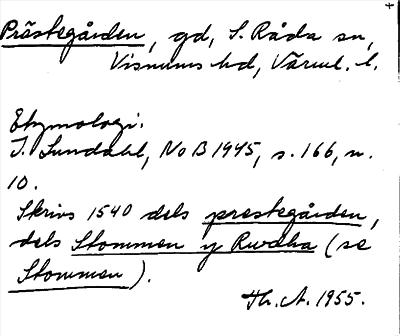 Prästegården, gd, S. Råda sn,
Visnums hd, Värml. l.
Etymologi:
I. Lundahl, NoB 1945, s. 166, n.
10.
Skrivs 1540 dels prestegården,
dels Stommen y Rwdha (se
Stommen).
Th. A. 1955.